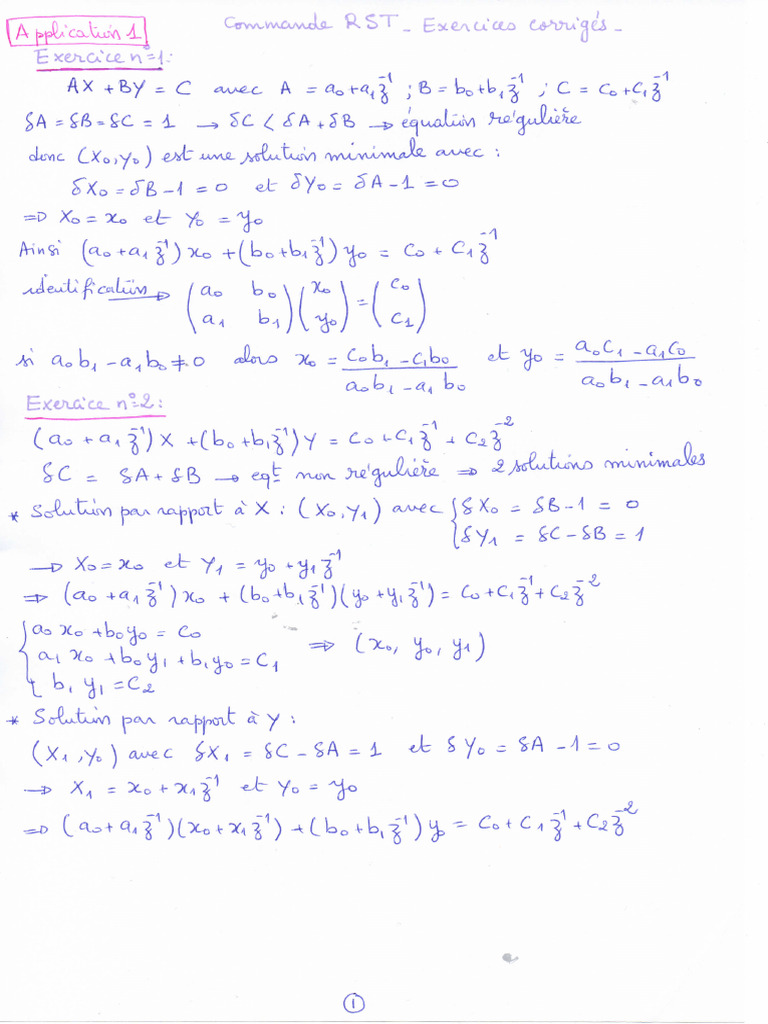 Commande RST - Exercices corrigés -
Application 1
Exercice n°1:
AX + BY = C avec A = a₀+a₁z⁻¹ ; B = b₀+b₁z⁻¹ ; C = C₀+C₁z⁻¹
δA = δB = δC = 1 → δC < δA + δB → équation régulière
donc (X₀,Y₀) est une solution minimale avec :
δX₀ = δB - 1 = 0 et δY₀ = δA - 1 = 0
⇒ X₀ = x₀ et Y₀ = y₀
Ainsi (a₀+a₁z⁻¹)x₀ + (b₀+b₁z⁻¹)y₀ = C₀ + C₁z⁻¹
identification → (a₀ b₀ ; a₁ b₁)(x₀ ; y₀) = (C₀ ; C₁)
si a₀b₁ - a₁b₀ ≠ 0 alors x₀ = (C₀b₁ - C₁b₀)/(a₀b₁ - a₁b₀) et y₀ = (a₀C₁ - a₁C₀)/(a₀b₁ - a₁b₀)
Exercice n°2:
(a₀ + a₁z⁻¹)X + (b₀+b₁z⁻¹)Y = C₀+C₁z⁻¹ + C₂z⁻²
δC = δA + δB → eqt non régulière ⇒ 2 solutions minimales
* Solution par rapport à X : (X₀,Y₁) avec { δX₀ = δB - 1 = 0
δY₁ = δC - δB = 1
→ X₀ = x₀ et Y₁ = y₀ + y₁z⁻¹
⇒ (a₀ + a₁z⁻¹)x₀ + (b₀+b₁z⁻¹)(y₀+y₁z⁻¹) = C₀+C₁z⁻¹+C₂z⁻²
{ a₀x₀ + b₀y₀ = C₀
a₁x₀ + b₀y₁ + b₁y₀ = C₁ ⇒ (x₀, y₀, y₁)
b₁y₁ = C₂
* Solution par rapport à Y :
(X₁,Y₀) avec δX₁ = δC - δA = 1 et δY₀ = δA - 1 = 0
→ X₁ = x₀ + x₁z⁻¹ et Y₀ = y₀
⇒ (a₀+a₁z⁻¹)(x₀+x₁z⁻¹) + (b₀+b₁z⁻¹)y₀ = C₀ + C₁z⁻¹ + C₂z⁻²
1